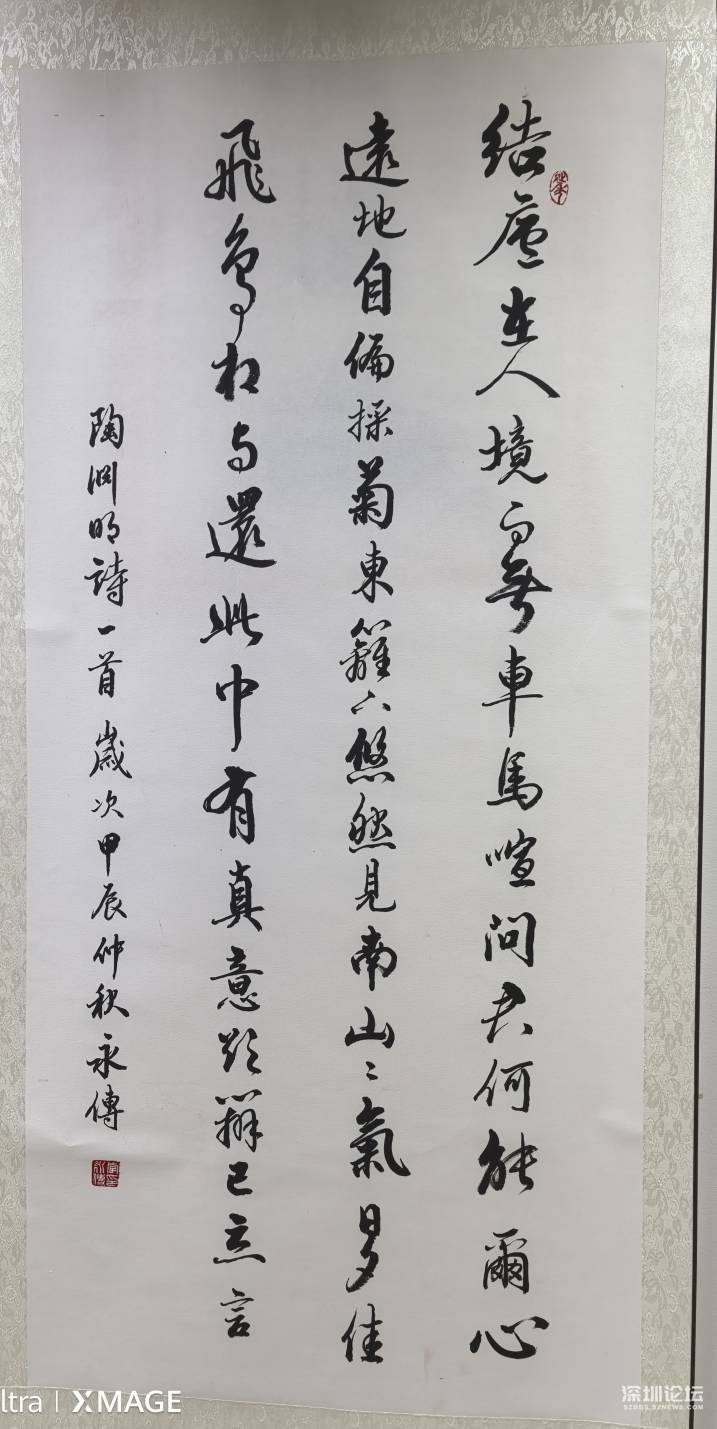 結廬在人境而無車馬喧問君何能爾心
遠地自偏採菊東籬下悠然見南山〻氣日夕佳
飛鳥相与還此中有真意欲辨已忘言
陶渊明詩一首 歲次甲辰仲秋永傳
ltra | XMAGE
深圳论坛
SZBBS.SZNEWS.COM